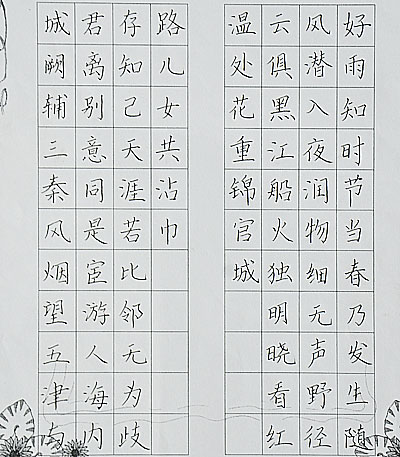 好雨知时节当春乃发生随
风潜入夜润物细无声野径
云俱黑江船火独明晓看红
温处花重锦官城
城阙辅三秦风烟望五津与
君离别意同是宦游人海内
存知己天涯若比邻无为歧
路儿女共沾巾